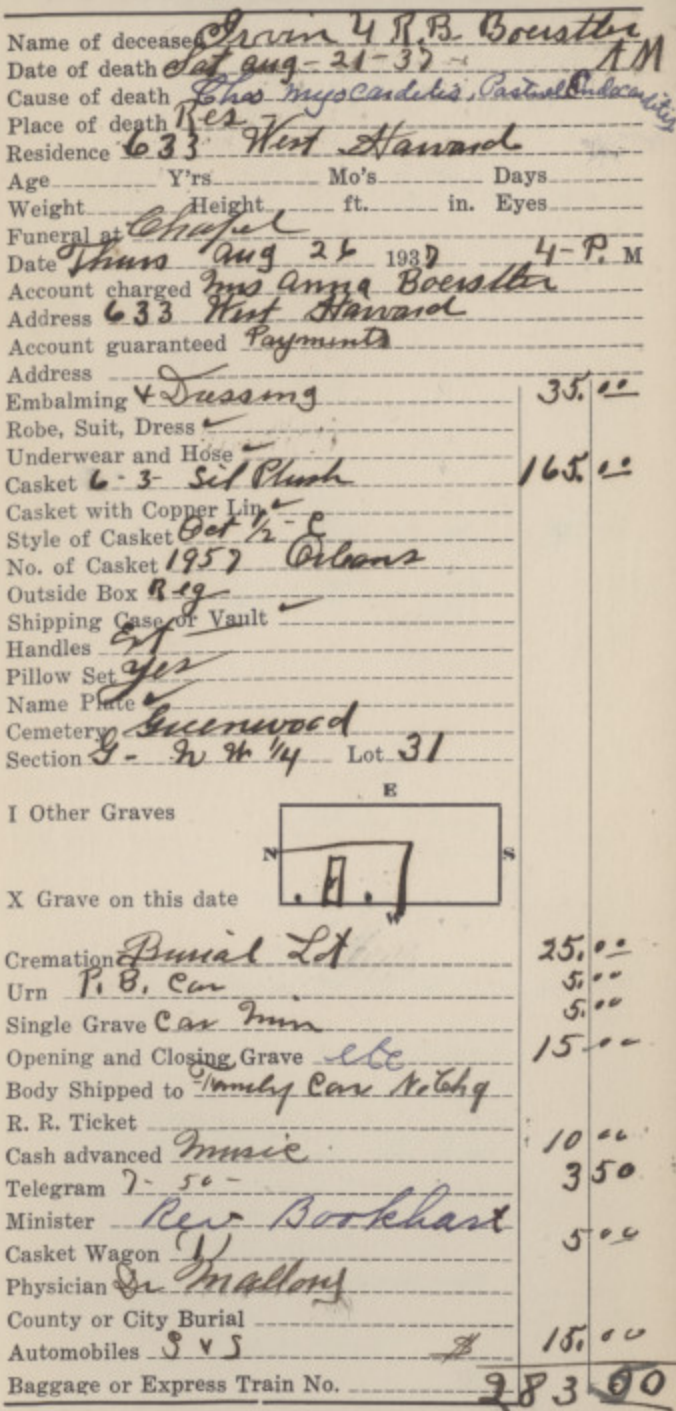 Name of deceased Irvin 4 R.B. Boerstler
Date of death Sat Aug-21-37- AM
Cause of death Chro Myocarditis, Endocarditis
Place of death Res
Residence 633 West Harvard
Age Y'rs Mo's Days
Weight Height ft. in. Eyes
Funeral at Chapel
Date Thurs Aug 26 1937 4-P. M
Account charged Mrs Anna Boerstler
Address 633 West Harvard
Account guaranteed Payments
Address
Embalming & Dressing 35.00
Robe, Suit, Dress ✓
Underwear and Hose ✓
Casket 6-3- Sil Plush 165.00
Casket with Copper Lin ✓
Style of Casket Oct 1/2-C
No. of Casket 1957 Orleans
Outside Box Reg
Shipping Case or Vault ✓
Handles Ext
Pillow Set yes
Name Plate ✓
Cemetery Greenwood
Section G- N W 1/4 Lot 31
E
I Other Graves
N S
X Grave on this date
W
Cremation Burial Lot 25.00
Urn P.B. Car 5.00
Single Grave Car Min 5.00
Opening and Closing Grave etc 15 00
Body Shipped to Family Car No Chg
R. R. Ticket
Cash advanced Music 10 00
Telegram 7-50- 3 50
Minister Rev Bookhart
Casket Wagon 5 00
Physician Dr Mallory
County or City Burial
Automobiles S v S $ 15.00
Baggage or Express Train No. 283 50